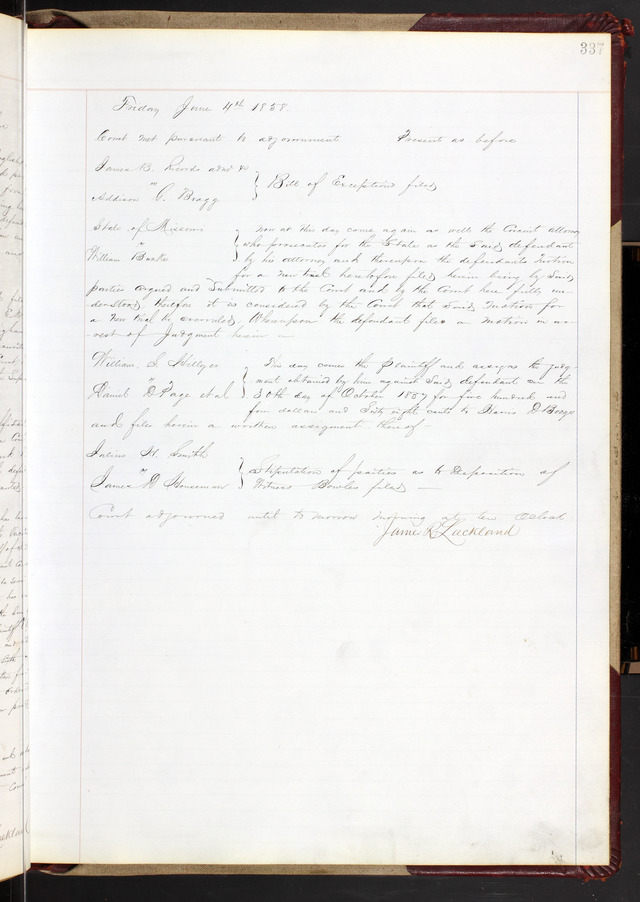 337
Friday June 4th 1858.
Court met pursuant to adjournment Present as before
James B. Records admr &c
vs
Addison G. Bragg } Bill of Exceptions filed
State of Missouri
vs
William Burke } Now at this day come again as well the Circuit Attorney
who prosecutes for the State as the said defendant
by his attorney and thereupon the defendants Motion
for a New trial heretofore filed herein being by said
parties argued and Submitted to the Court and by the Court here fully un-
derstood, therefore it is considered by the Court that said Motion for
a New trial be overruled, Whereupon the defendant files a Motion in ar-
rest of Judgment herein
William S. Hillyer
vs
Daniel D. Page et al } This day comes the Plaintiff and assigns the judg-
ment obtained by him against said defendant on the
30th day of October 1857 for five hundred and
four dollars and Sixty eight cents to D. Boggs
and files herein a written assignment thereof
Julius H. Smith
vs
James D. Houseman } Stipulation of parties as to deposition of
Witness Bowles filed
Court adjourned until to morrow morning at ten O'clock
James R. Lackland